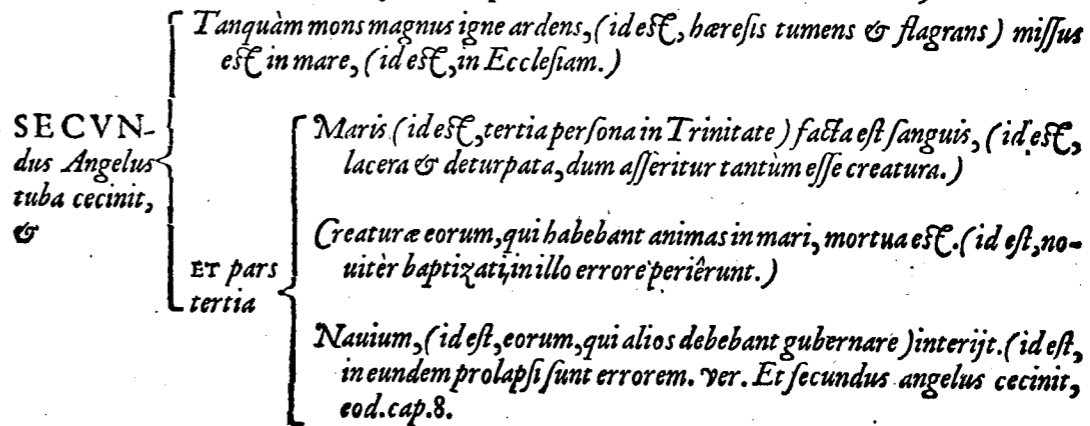 Tanquàm mons magnus igne ardens, (id est, hæresis tumens & flagrans) missus
est in mare, (id est, in Ecclesiam.)
SECVN-
dus Angelus
tuba cecinit,
&
ET pars
tertia
Maris (id est, tertia persona in Trinitate) facta est sanguis, (id est,
lacera & deturpata, dum asseritur tantùm esse creatura.)
Creaturæ eorum, qui habebant animas in mari, mortua est. (id est, no-
uitèr baptizati, in illo errore periêrunt.)
Nauium, (id est, eorum, qui alios debebant gubernare) interijt. (id est,
in eundem prolapsi sunt errorem. ver. Et secundus angelus cecinit,
eod. cap. 8.